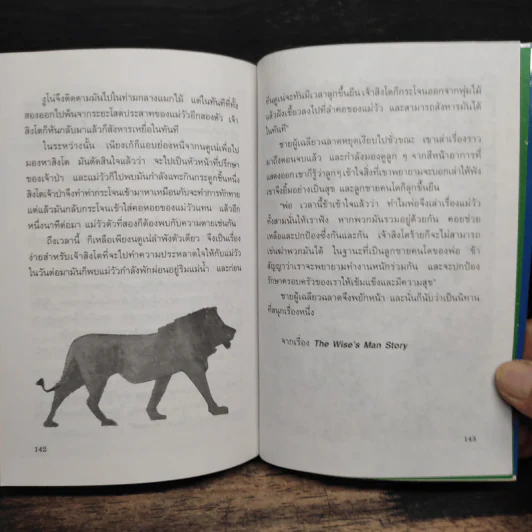 รูโนจึงติดตามมันไปในท่ามกลางแมกไม้ แต่ในทันทีที่ทั้ง
สองออกไปพ้นจากระยะโสตประสาทของแม่วัวอีกสองตัว เจ้า
สิงโตก็หันกลับมาแล้วก็สังหารเหยื่อในทันที
ในระหว่างนั้น เนียงเก้ก็แอบย่องหนีจากดูเน่เพื่อไป
มองหาสิงโต มันตัดสินใจแล้วว่า จะไปเป็นหัวหน้าที่ปรึกษา
ของเจ้าป่า และแม่วัวก็ไปพบมันกำลังแทะกินกระดูกชิ้นหนึ่ง
สิงโตเจ้าป่าจึงทำท่ากระโจนเข้ามาหาเหมือนกับจะทำการทักทาย
แต่แล้วมันกลับกระโจนเข้าใส่คอหอยของแม่วัวแทน แล้วอีก
หนึ่งนาทีต่อมา แม่วัวตัวที่สองก็ต้องพบกับความตายเช่นกัน
ถึงเวลานี้ ก็เหลือเพียงนดูเน่ลำพังตัวเดียว จึงเป็นเรื่อง
ง่ายสำหรับเจ้าสิงโตที่จะไปทำความประหลาดใจให้กับแม่วัว
ในวันต่อมามันก็พบแม่วัวกำลังพักผ่อนอยู่ริมแม่น้ำ และก่อน
142
ที่นดูเน่จะทันมีเวลาลุกขึ้นยืน เจ้าสิงโตก็กระโจนออกจากพุ่มไม้
แล้วฝังเขี้ยวลงไปที่ลำคอของแม่วัว และสามารถสังหารมันได้
ในทันที"
ชายผู้เฉลียวฉลาดหยุดเงียบไปชั่วขณะ เขาเล่าเรื่องราว
มาถึงตอนจบแล้ว และกำลังมองดูลูก ๆ จากสีหน้าอาการที่
แสดงออกเขาก็รู้ว่าลูกๆ เข้าใจสิ่งที่เขาพยายามจะบอกเล่าให้ฟัง
เขาจึงยิ้มอย่างเป็นสุข และลูกชายคนโตก็ลุกขึ้นยืน
"พ่อ เวลานี้ข้าเข้าใจแล้วว่า ทำไมพ่อจึงเล่าเรื่องแม่วัว
ทั้งสามนั่นให้เราฟัง หากพวกมันรวมอยู่ด้วยกัน คอยช่วย
เหลือและปกป้องซึ่งกันและกัน เจ้าสิงโตร้ายก็จะไม่สามารถ
เข่นฆ่าพวกมันได้ ในฐานะที่เป็นลูกชายคนโตของพ่อ ข้า
สัญญาว่าเราจะพยายามทำงานหนักร่วมกัน และจะปกป้อง
รักษาครอบครัวของเราให้เข้มแข็งและมีความสุข"
ชายผู้เฉลียวฉลาดจึงพยักหน้า และนั่นก็นับว่าเป็นนิทาน
ที่สนุกเรื่องหนึ่ง
จากเรื่อง The Wise's Man Story
143